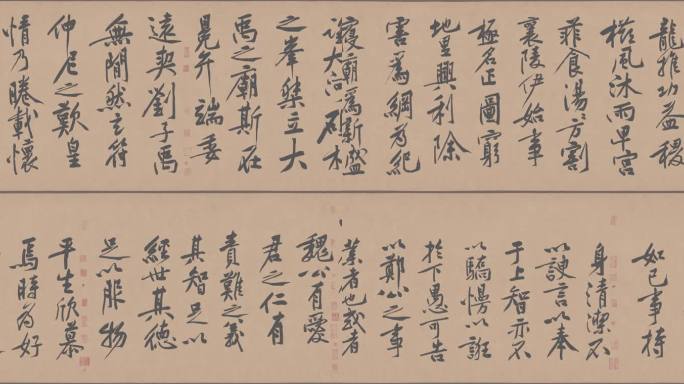 龍推功益稷
櫛風沐雨卑宮
菲食湯湯方割
襄陵伊始事
極名正圖窮
地里興利除
害爲綱爲紀
寢廟爲新盛
大河砥柱
之峯桀立大
禹之廟斯在
冕弁端委
遠契劉子禹
無間然玄符
仲尼之歎皇
情乃睠載懷
如己事持
身清潔不
以諛言以奉
于上智亦不
以驕慢以誑
於下愚可告
以鄭公之事
業者也或者
魏公有愛
君之仁有
責難之義
其智足以
經世其德
足以服物
平生欣慕
焉時爲好